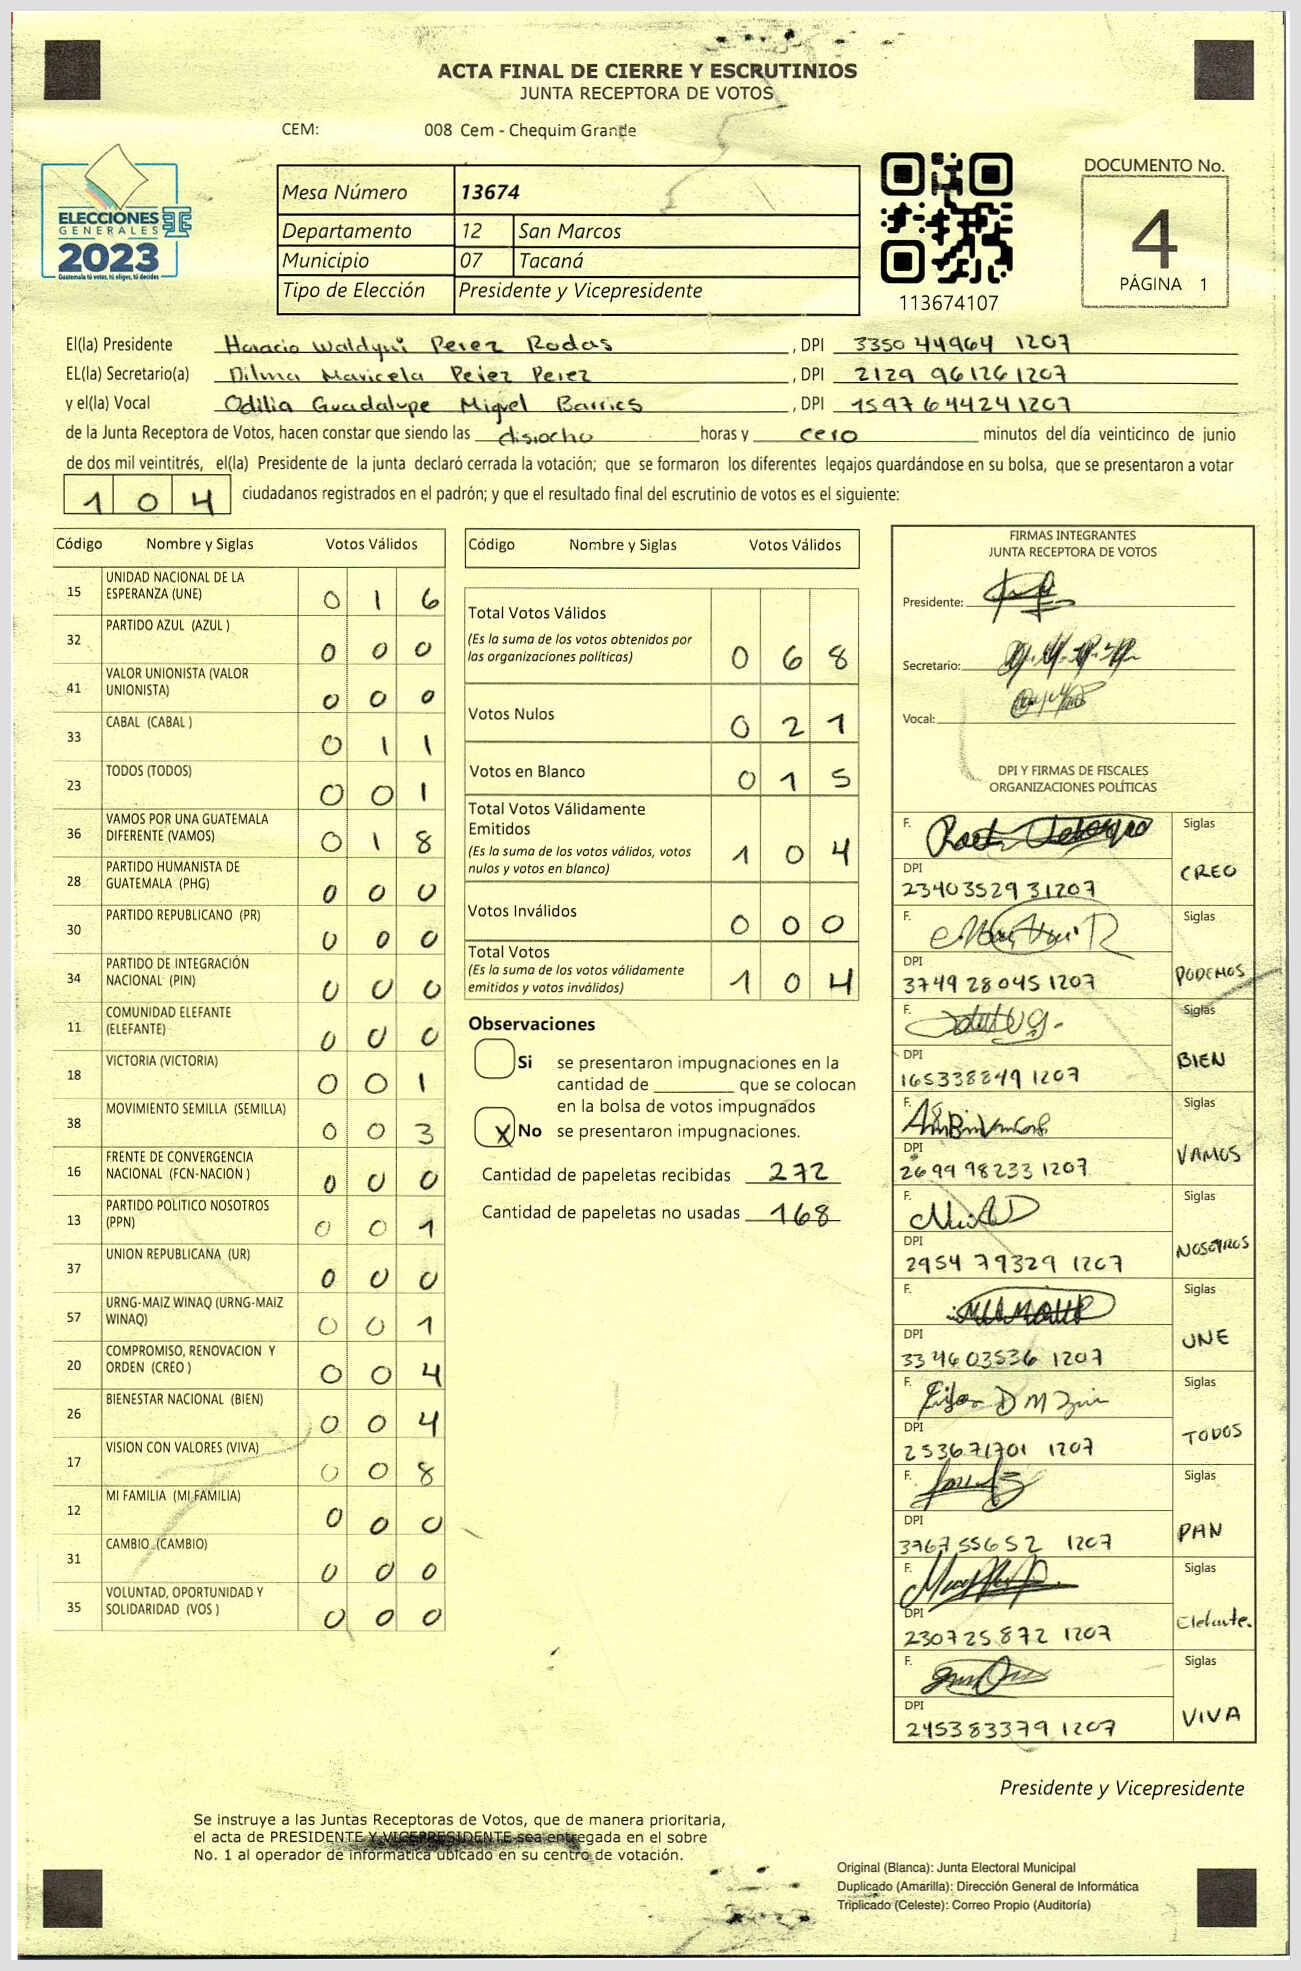 ACTA FINAL DE CIERRE Y ESCRUTINIOS
JUNTA RECEPTORA DE VOTOS
CEM: 008 Cem - Chequim Grande
ELECCIONES
GENERALES
2023
Guatemala tú votas, tú eliges, tú decides
Mesa Número 13674
Departamento 12 San Marcos
Municipio 07 Tacaná
Tipo de Elección Presidente y Vicepresidente
113674107
DOCUMENTO No.
4
PÁGINA 1
El(la) Presidente Horacio Waldyni Perez Rodas, DPI 3350 44964 1207
EL(la) Secretario(a) Dilma Maricela Perez Perez, DPI 2129 96126 1207
y el(la) Vocal Odilia Guadalupe Miguel Barrios, DPI 1597 64424 1207
de la Junta Receptora de Votos, hacen constar que siendo las disiocho horas y cero minutos del día veinticinco de junio
de dos mil veintitrés, el(la) Presidente de la junta declaró cerrada la votación; que se formaron los diferentes legajos guardándose en su bolsa, que se presentaron a votar
104 ciudadanos registrados en el padrón; y que el resultado final del escrutinio de votos es el siguiente:
Código Nombre y Siglas Votos Válidos
15 UNIDAD NACIONAL DE LA ESPERANZA (UNE) 0 1 6
32 PARTIDO AZUL (AZUL ) 0 0 0
41 VALOR UNIONISTA (VALOR UNIONISTA) 0 0 0
33 CABAL (CABAL ) 0 1 1
23 TODOS (TODOS) 0 0 1
36 VAMOS POR UNA GUATEMALA DIFERENTE (VAMOS) 0 1 8
28 PARTIDO HUMANISTA DE GUATEMALA (PHG) 0 0 0
30 PARTIDO REPUBLICANO (PR) 0 0 0
34 PARTIDO DE INTEGRACIÓN NACIONAL (PIN) 0 0 0
11 COMUNIDAD ELEFANTE (ELEFANTE) 0 0 0
18 VICTORIA (VICTORIA) 0 0 1
38 MOVIMIENTO SEMILLA (SEMILLA) 0 0 3
16 FRENTE DE CONVERGENCIA NACIONAL (FCN-NACION ) 0 0 0
13 PARTIDO POLITICO NOSOTROS (PPN) 0 0 1
37 UNION REPUBLICANA (UR) 0 0 0
57 URNG-MAIZ WINAQ (URNG-MAIZ WINAQ) 0 0 1
20 COMPROMISO, RENOVACION Y ORDEN (CREO ) 0 0 4
26 BIENESTAR NACIONAL (BIEN) 0 0 4
17 VISION CON VALORES (VIVA) 0 0 8
12 MI FAMILIA (MI FAMILIA) 0 0 0
31 CAMBIO (CAMBIO) 0 0 0
35 VOLUNTAD, OPORTUNIDAD Y SOLIDARIDAD (VOS ) 0 0 0
Código Nombre y Siglas Votos Válidos
Total Votos Válidos 0 6 8
(Es la suma de los votos obtenidos por
las organizaciones políticas)
Votos Nulos 0 2 1
Votos en Blanco 0 1 5
Total Votos Válidamente
Emitidos 1 0 4
(Es la suma de los votos válidos, votos
nulos y votos en blanco)
Votos Inválidos 0 0 0
Total Votos 1 0 4
(Es la suma de los votos válidamente
emitidos y votos inválidos)
Observaciones
Si se presentaron impugnaciones en la
cantidad de ________ que se colocan
en la bolsa de votos impugnados
X No se presentaron impugnaciones.
Cantidad de papeletas recibidas 272
Cantidad de papeletas no usadas 168
FIRMAS INTEGRANTES
JUNTA RECEPTORA DE VOTOS
Presidente:
Secretario:
Vocal:
DPI Y FIRMAS DE FISCALES
ORGANIZACIONES POLÍTICAS
F. Siglas
DPI CREO
23403529 31207
F. Siglas
DPI PODEMOS
3749 28045 1207
F. Siglas
DPI BIEN
165338849 1207
F. Siglas
DPI VAMOS
2699 98233 1207
F. Siglas
DPI NOSOTROS
2954 79329 1207
F. Siglas
DPI UNE
334603536 1207
F. Siglas
DPI TODOS
253671701 1207
F. Siglas
DPI PAN
3767 55652 1207
F. Siglas
DPI Elefante.
230725872 1207
F. Siglas
DPI VIVA
245383379 1207
Presidente y Vicepresidente
Se instruye a las Juntas Receptoras de Votos, que de manera prioritaria,
el acta de PRESIDENTE Y VICEPRESIDENTE sea entregada en el sobre
No. 1 al operador de informática ubicado en su centro de votación.
Original (Blanca): Junta Electoral Municipal
Duplicado (Amarilla): Dirección General de Informática
Triplicado (Celeste): Correo Propio (Auditoría)